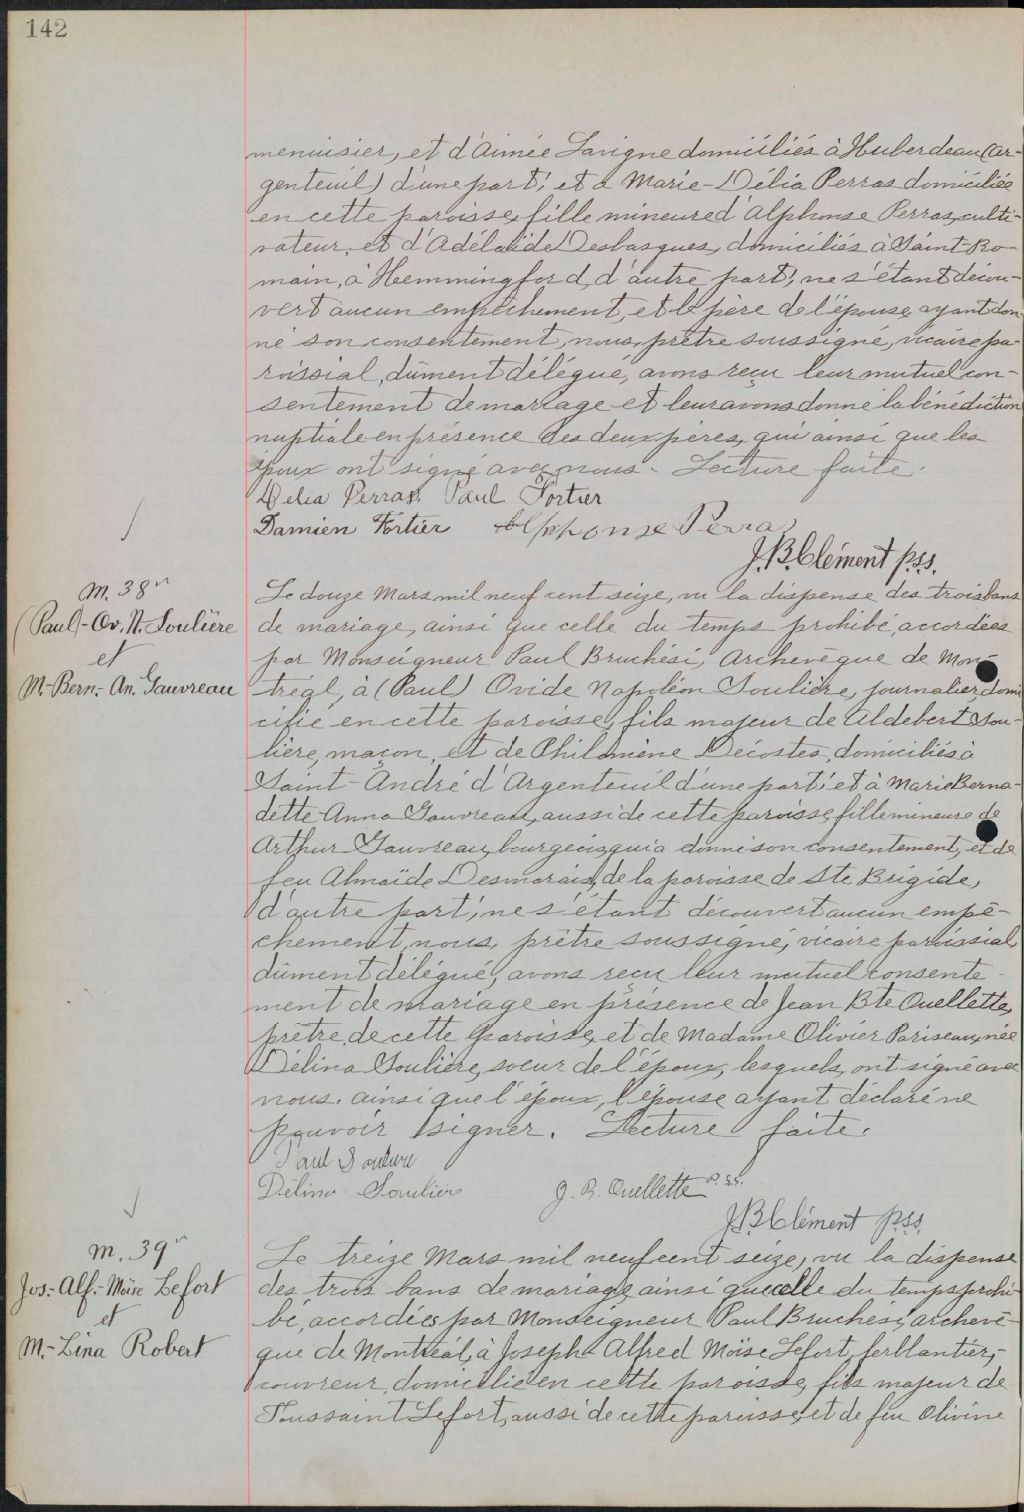 142
menuisier, et d'Aimée Lavigne domiciliés à Huberdeau (Ar-
genteuil) d'une part; et à Marie-Délia Perras domiciliée
en cette paroisse, fille mineure d'Alphonse Perras, culti-
vateur, et d'Adélaïde Desbasques, domiciliés à Saint-Ro-
main, à Hemmingford, d'autre part; ne s'étant décou-
vert aucun empêchement, et le père de l'épouse ayant don-
né son consentement, nous, prêtre soussigné, vicaire pa-
roissial, dûment délégué, avons reçu leur mutuel con-
sentement de mariage et leur avons donné la bénédiction
nuptiale en présence des deux pères, qui ainsi que les
époux ont signé avec nous. Lecture faite.
Délia Perras. Paul Fortier
Damien Fortier Alphonse Perras
J. B. Clément p.s.s.
m. 38n
(Paul)-Ov. N. Soulière
et
M.-Bern.-An. Gauvreau
Le douze Mars mil neuf cent seize, vu la dispense des trois bans
de mariage, ainsi que celle du temps prohibé, accordées
par Monseigneur Paul Bruchési, Archevêque de Mon-
tréal, à (Paul) Ovide Napoléon Soulière, journalier, domi
cilié en cette paroisse, fils majeur de Aldebert Sou-
lière, maçon, et de Philomène Décostes, domiciliés à
Saint-André d'Argenteuil d'une part; et à Marie Berna-
dette Anna Gauvreau, aussi de cette paroisse, fille mineure de
Arthur Gauvreau, bourgeois, qui a donné son consentement, et de
feu Almaïde Desmarais, de la paroisse de Ste Brigide,
d'autre part; ne s'étant découvert aucun empê-
chement, nous, prêtre soussigné, vicaire paroissial,
dûment délégué, avons reçu leur mutuel consente-
ment de mariage en présence de Jean Bte Ouellette,
prêtre de cette paroisse, et de Madame Olivier Pariseau, née
Délina Soulière, soeur de l'époux, lesquels, ont signé avec
nous. ainsi que l'époux, l'épouse ayant déclaré ne
pouvoir signer. Lecture faite.
Paul Souliere
Délina Soulier J. B. Ouellette p.s.s.
J. B. Clément p.s.s.
m. 39n
Jos.-Alf.-Moïse Lefort
et
M.-Lina Robert
Le treize Mars mil neuf cent seize, vu la dispense
des trois bans de mariage, ainsi que celle du temps prohi-
bé, accordées par Monseigneur Paul Bruchési, archevê-
que de Montréal, à Joseph Alfred Moïse Lefort, ferblantier,-
couvreur, domicilié en cette paroisse, fils majeur de
Toussaint Lefort, aussi de cette paroisse, et de feu Olivine